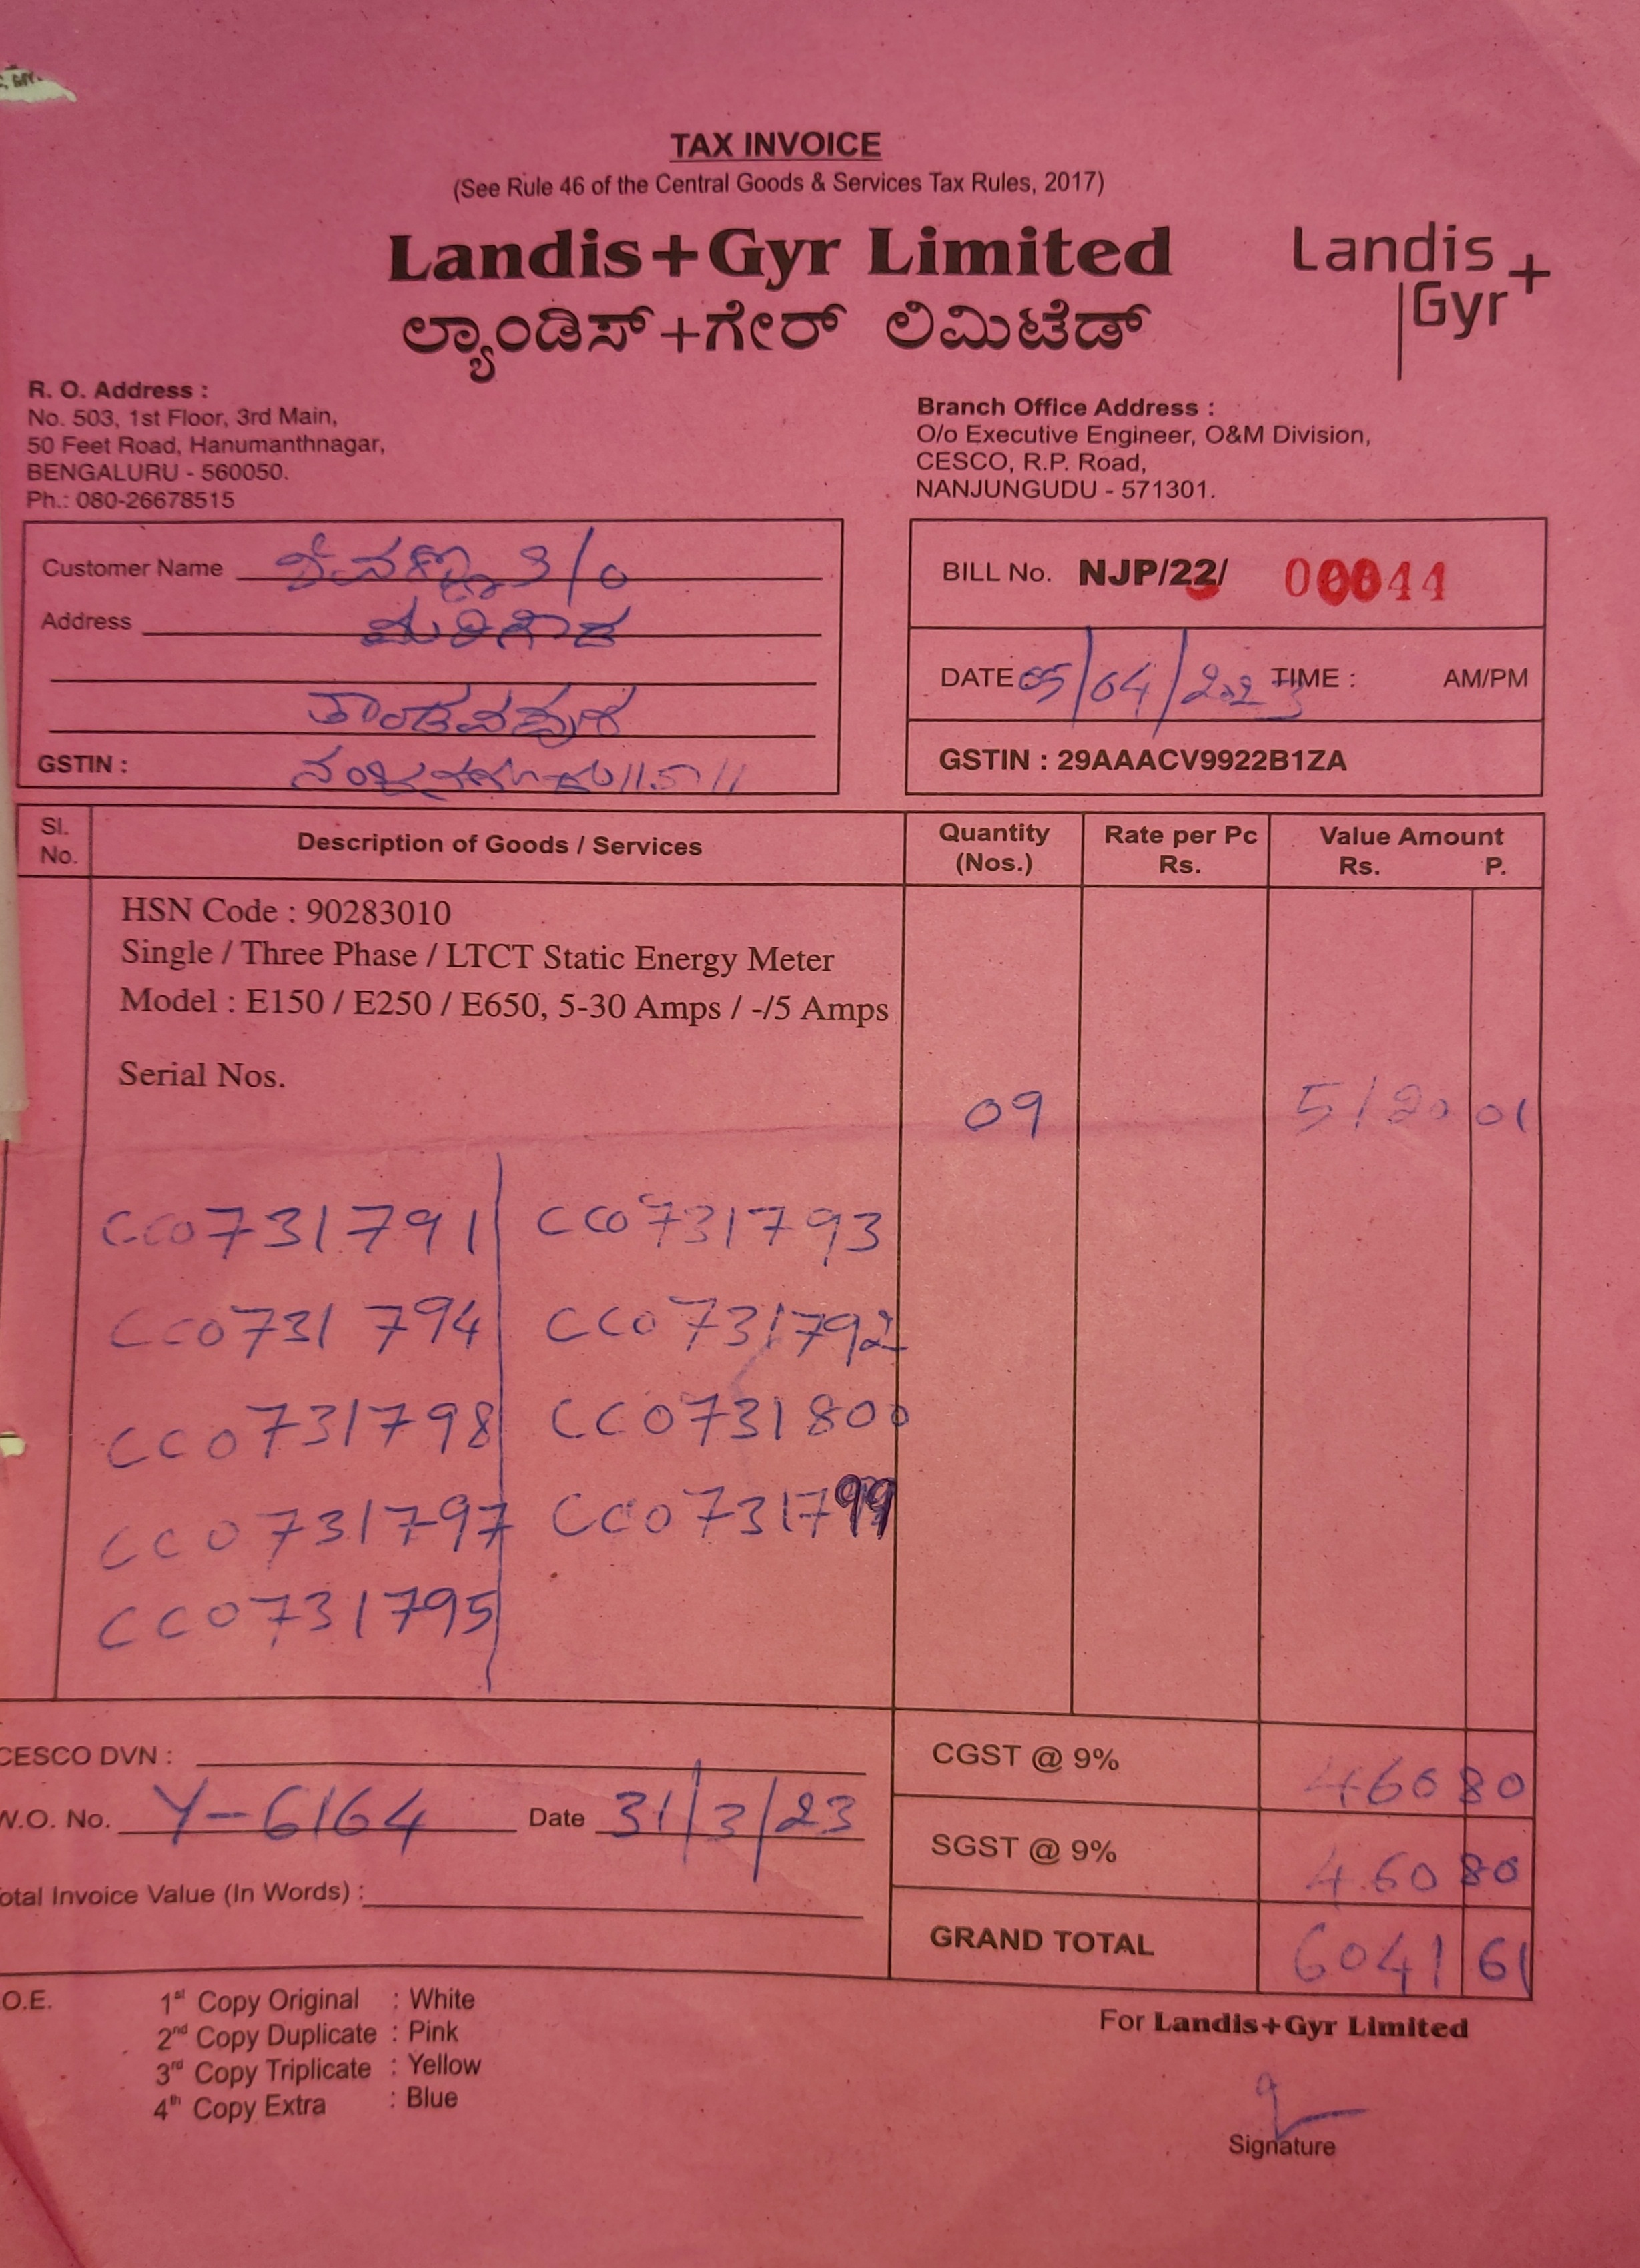 TAX INVOICE
(See Rule 46 of the Central Goods & Services Tax Rules, 2017)
Landis+Gyr Limited
ಲ್ಯಾಂಡಿಸ್+ಗೇರ್ ಲಿಮಿಟೆಡ್
Landis+
Gyr
R. O. Address :
No. 503, 1st Floor, 3rd Main,
50 Feet Road, Hanumanthnagar,
BENGALURU - 560050.
Ph.: 080-26678515
Branch Office Address :
O/o Executive Engineer, O&M Division,
CESCO, R.P. Road,
NANJUNGUDU - 571301.
Customer Name
Address
ತಾಂಡವಪುರ
GSTIN :
BILL No. NJP/23/ 00044
DATE 05/04/2023 TIME : AM/PM
GSTIN : 29AAACV9922B1ZA
Sl. No. Description of Goods / Services Quantity (Nos.) Rate per Pc Rs. Value Amount Rs. P.
HSN Code : 90283010
Single / Three Phase / LTCT Static Energy Meter
Model : E150 / E250 / E650, 5-30 Amps / -/5 Amps
Serial Nos.
09 5120 01
CC0731791 CC0731793
CC0731794 CC0731792
CC0731798 CC0731800
CC0731797 CC0731799
CC0731795
CESCO DVN :
W.O. No. Y-6164 Date 31/3/23
Total Invoice Value (In Words) :
CGST @ 9% 460 80
SGST @ 9% 460 80
GRAND TOTAL 6041 61
O.E.
1st Copy Original : White
2nd Copy Duplicate : Pink
3rd Copy Triplicate : Yellow
4th Copy Extra : Blue
For Landis+Gyr Limited
Signature